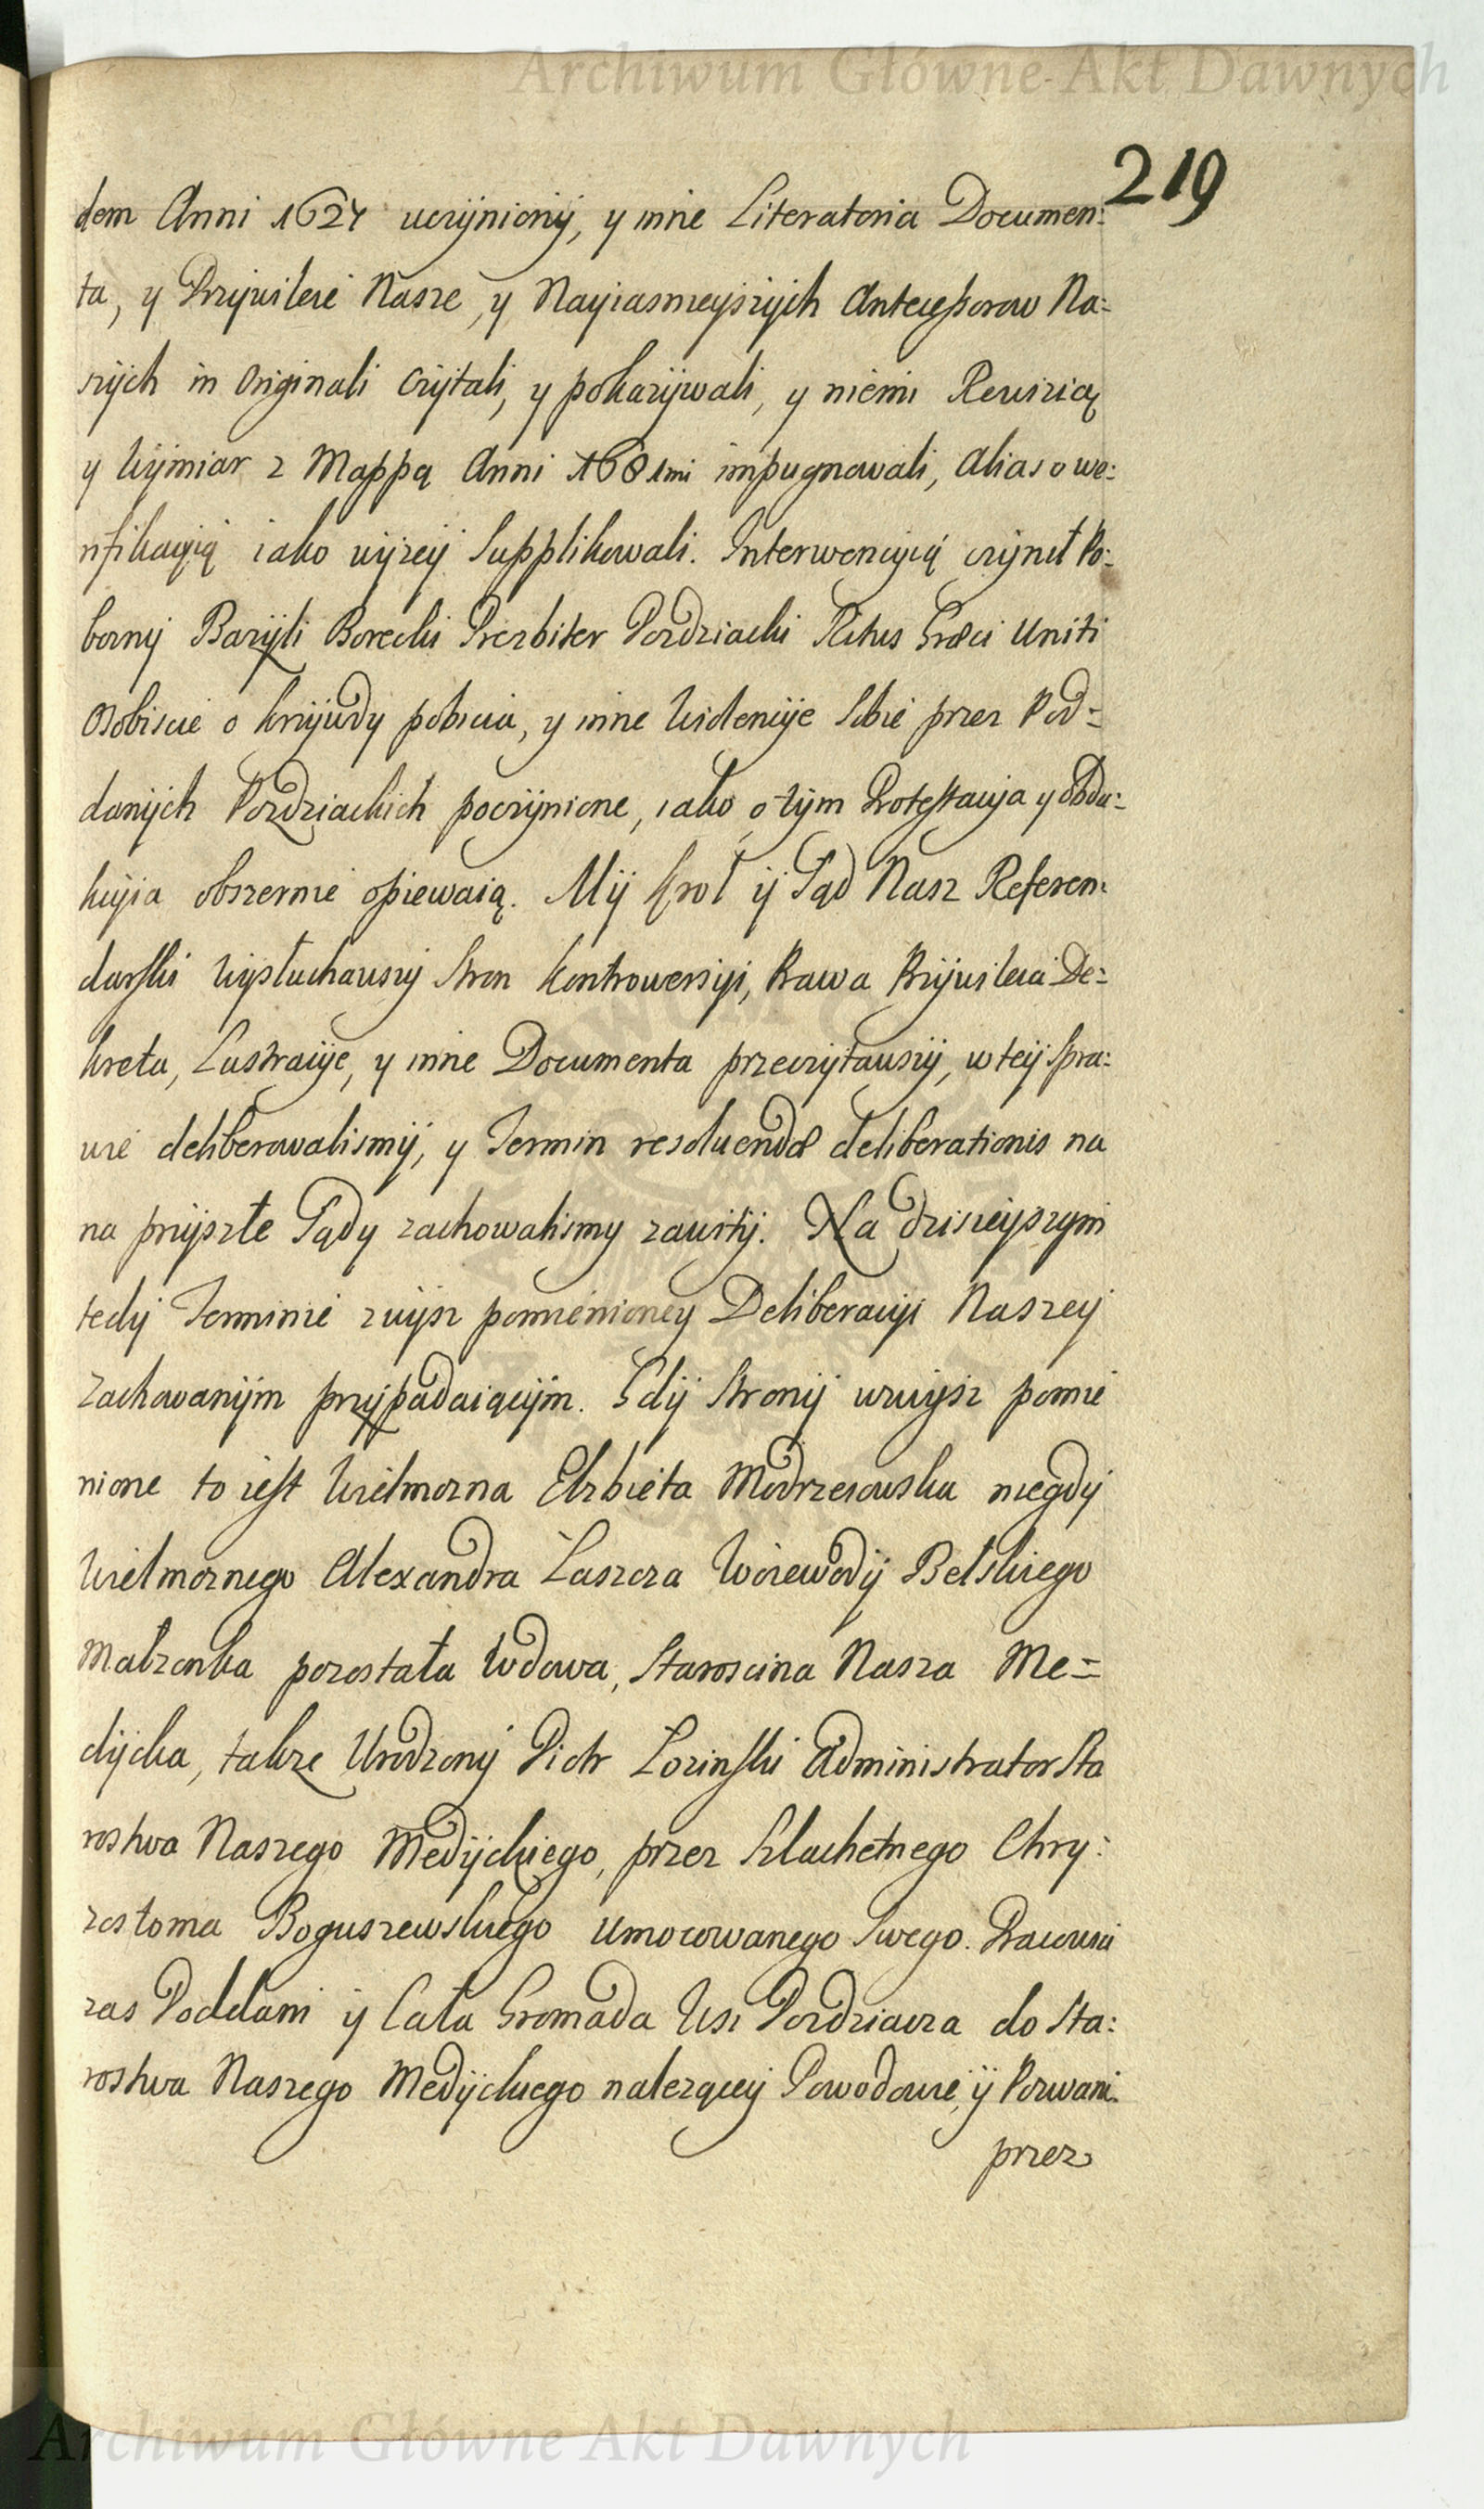 Archiwum Główne Akt Dawnych
219
dem Anni 1624 uczÿnionÿ, y inne Literatoria Documen:
ta, y Przÿwileie Nasze, y Nayiasnieyszÿch Antecessorow Na:
szÿch in Originali Czÿtali, y pokazÿwali, y niemi Rewizią
y Wÿmiar z Mappą Anni 1681mi impugnowali, Alias o we:
rÿfikacÿią iako wÿzeÿ Supplikowali. Interwencÿią czÿnił Po:
bornÿ Bazÿli Borecki Prezbiter Pozdziacki Ritus Græci Uniti
Osobiscie o krzÿwdy pobicia, y inne Wiolencÿe Sobie przez Pod=
danÿch Pozdziackich poczÿnione, iako o tÿm Protestacÿa y Obdu:
kcÿia obszernie opiewaią. Mÿ Krol ÿ Sąd Nasz Referen:
darski Wÿsłuchawszÿ Stron Kontrowersÿi, Prawa Przÿwileia De=
kreta, Lustracÿe, y inne Documenta przeczÿtawszÿ, w teÿ Spra:
wie deliberowalismÿ, y Termin resoluendæ deliberationis na
na przÿszłe Sądy zachowalismy zawitÿ. Na dzisieyszym
tedÿ Terminie zwÿsz pomienioney Deliberacÿi Naszeÿ
zachowanÿm przÿpadaiącÿm. Gdÿ Stronÿ wzwÿsz pomie
nione to iest Wielmozna Elzbieta Modrzewska niegdÿ
Wielmoznego Alexandra Łaszcza Woiewodÿ Bełskiego
Małzonka pozostała Wdowa, Staroscina Nasza Me=
dÿcka, takze Urodzonÿ Piotr Łozinski Administrator Sta
rostwa Naszego Medÿckiego, przez Szlachetnego Chry:
zostoma Boguszewskiego Umocowanego Swego. Pracowici
zas Poddani ÿ Cała Gromada Wsi Pozdziacza do Sta:
rostwa Naszego Medÿckiego nalezącÿ Powodowie, ÿ Pozwani.
przez
Archiwum Główne Akt Dawnych